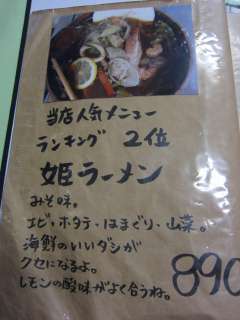 当店人気メニュー
ランキング 2位
姫ラーメン
みそ味。
エビ、ホタテ、はまぐり、山菜。
海鮮のいいダシが
クセになるよ。
レモンの酸味がよく合うね。
890